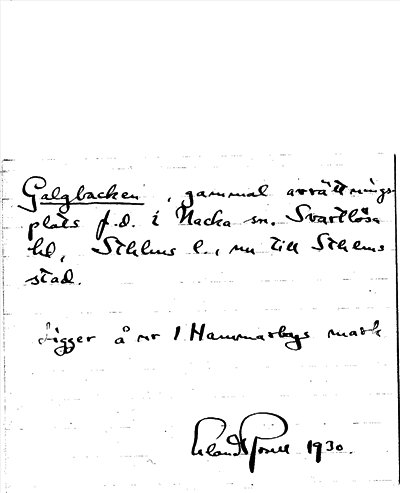 Galgbacken, gammal avrättnings-
plats f.d. i Nacka sn. Svartlösa
hd, Sthlms l., nu till Sthlms
stad.
Ligger å nr 1 Hammarbys mark
Erland 1930.